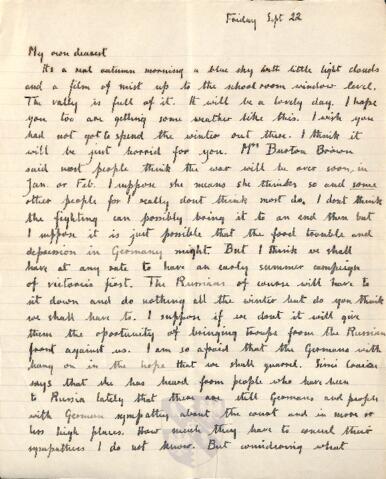 Friday Sept 22
My own dearest
Its a real autumn morning a blue sky with little light clouds
and a film of mist up to the schoolroom window level.
The valley is full of it. It will be a lovely day. I hope
you too are getting some weather like this. I wish you
had not got to spend the winter out there. I think it
will be just horrid for you. Mrs Burton Brown
said most people think the war will be over soon, in
Jan. or Feb. I suppose she means she thinks so and some
other people for I really dont think most do. I dont think
the fighting can possibly bring it to an end then but
I suppose it is just possible that the food trouble and
depression in Germany might. But I think we shall
have at any rate to have an early summer campaign
of victories first. The Russians of course will have to
sit down and do nothing all the winter but do you think
we shall have to. I suppose if we dont it will give
them the oportunity of bringing troops from the Russian
front against us. I am so afraid that the Germans will
hang on in the hope that we shall quarrel. Louisa
says that she has heard from people who have been
to Russia lately that there are still Germans and people
with German sympathy about the court and in more or
less high places. How much they have to conceal their
sympathies I do not know. But considering what